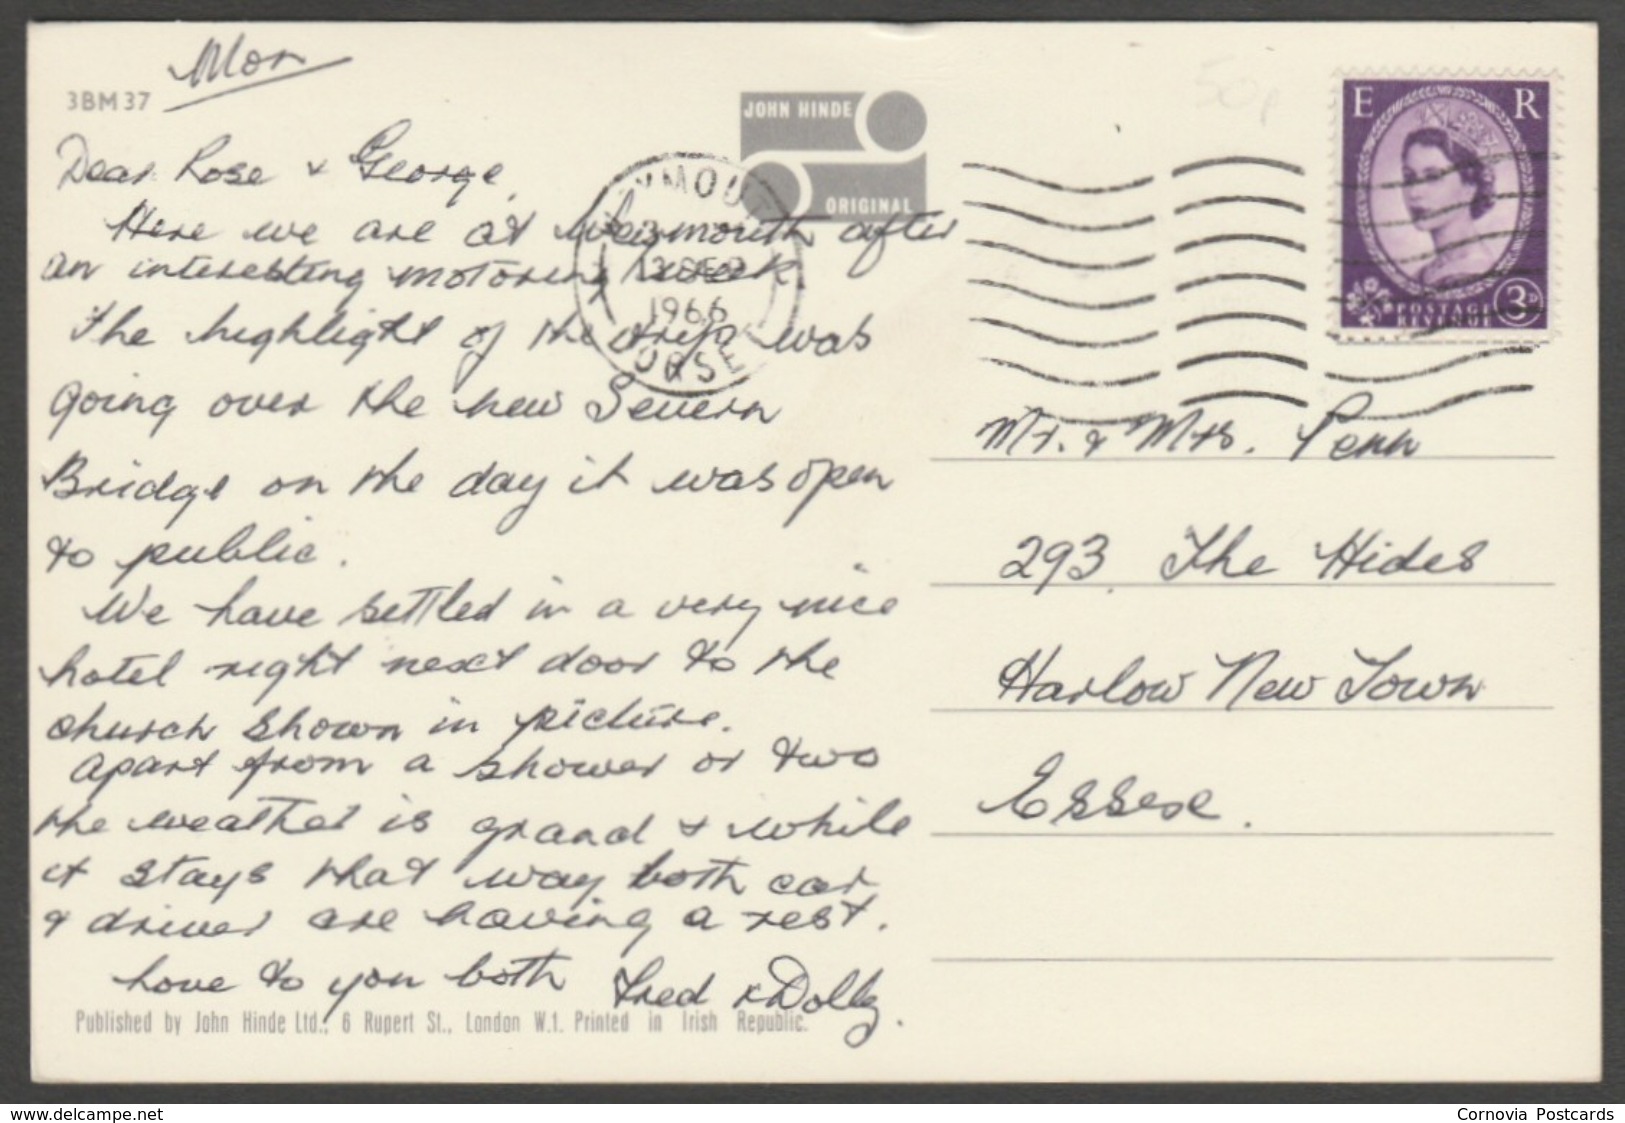 Mon
3BM37
JOHN HINDE
ORIGINAL
Dear Rose & George,
Here we are at Weymouth after
an interesting motoring week.
The highlight of the trip was
going over the new Severn
Bridge on the day it was open
to public.
We have settled in a very nice
hotel right next door to the
church shown in picture.
Apart from a shower or two
the weather is grand & while
it stays that way both car
& driver are having a rest.
Love to you both Fred & Dolly.
Published by John Hinde Ltd., 6 Rupert St., London W.1. Printed in Irish Republic.
YMOUT
13 SEP
1966
ORSE
50p
E R
POSTAGE
REVENUE
3D
Mr. & Mrs. Penn
293. The Hides
Harlow New Town
Essex.
www.delcampe.net
Cornovia Postcards